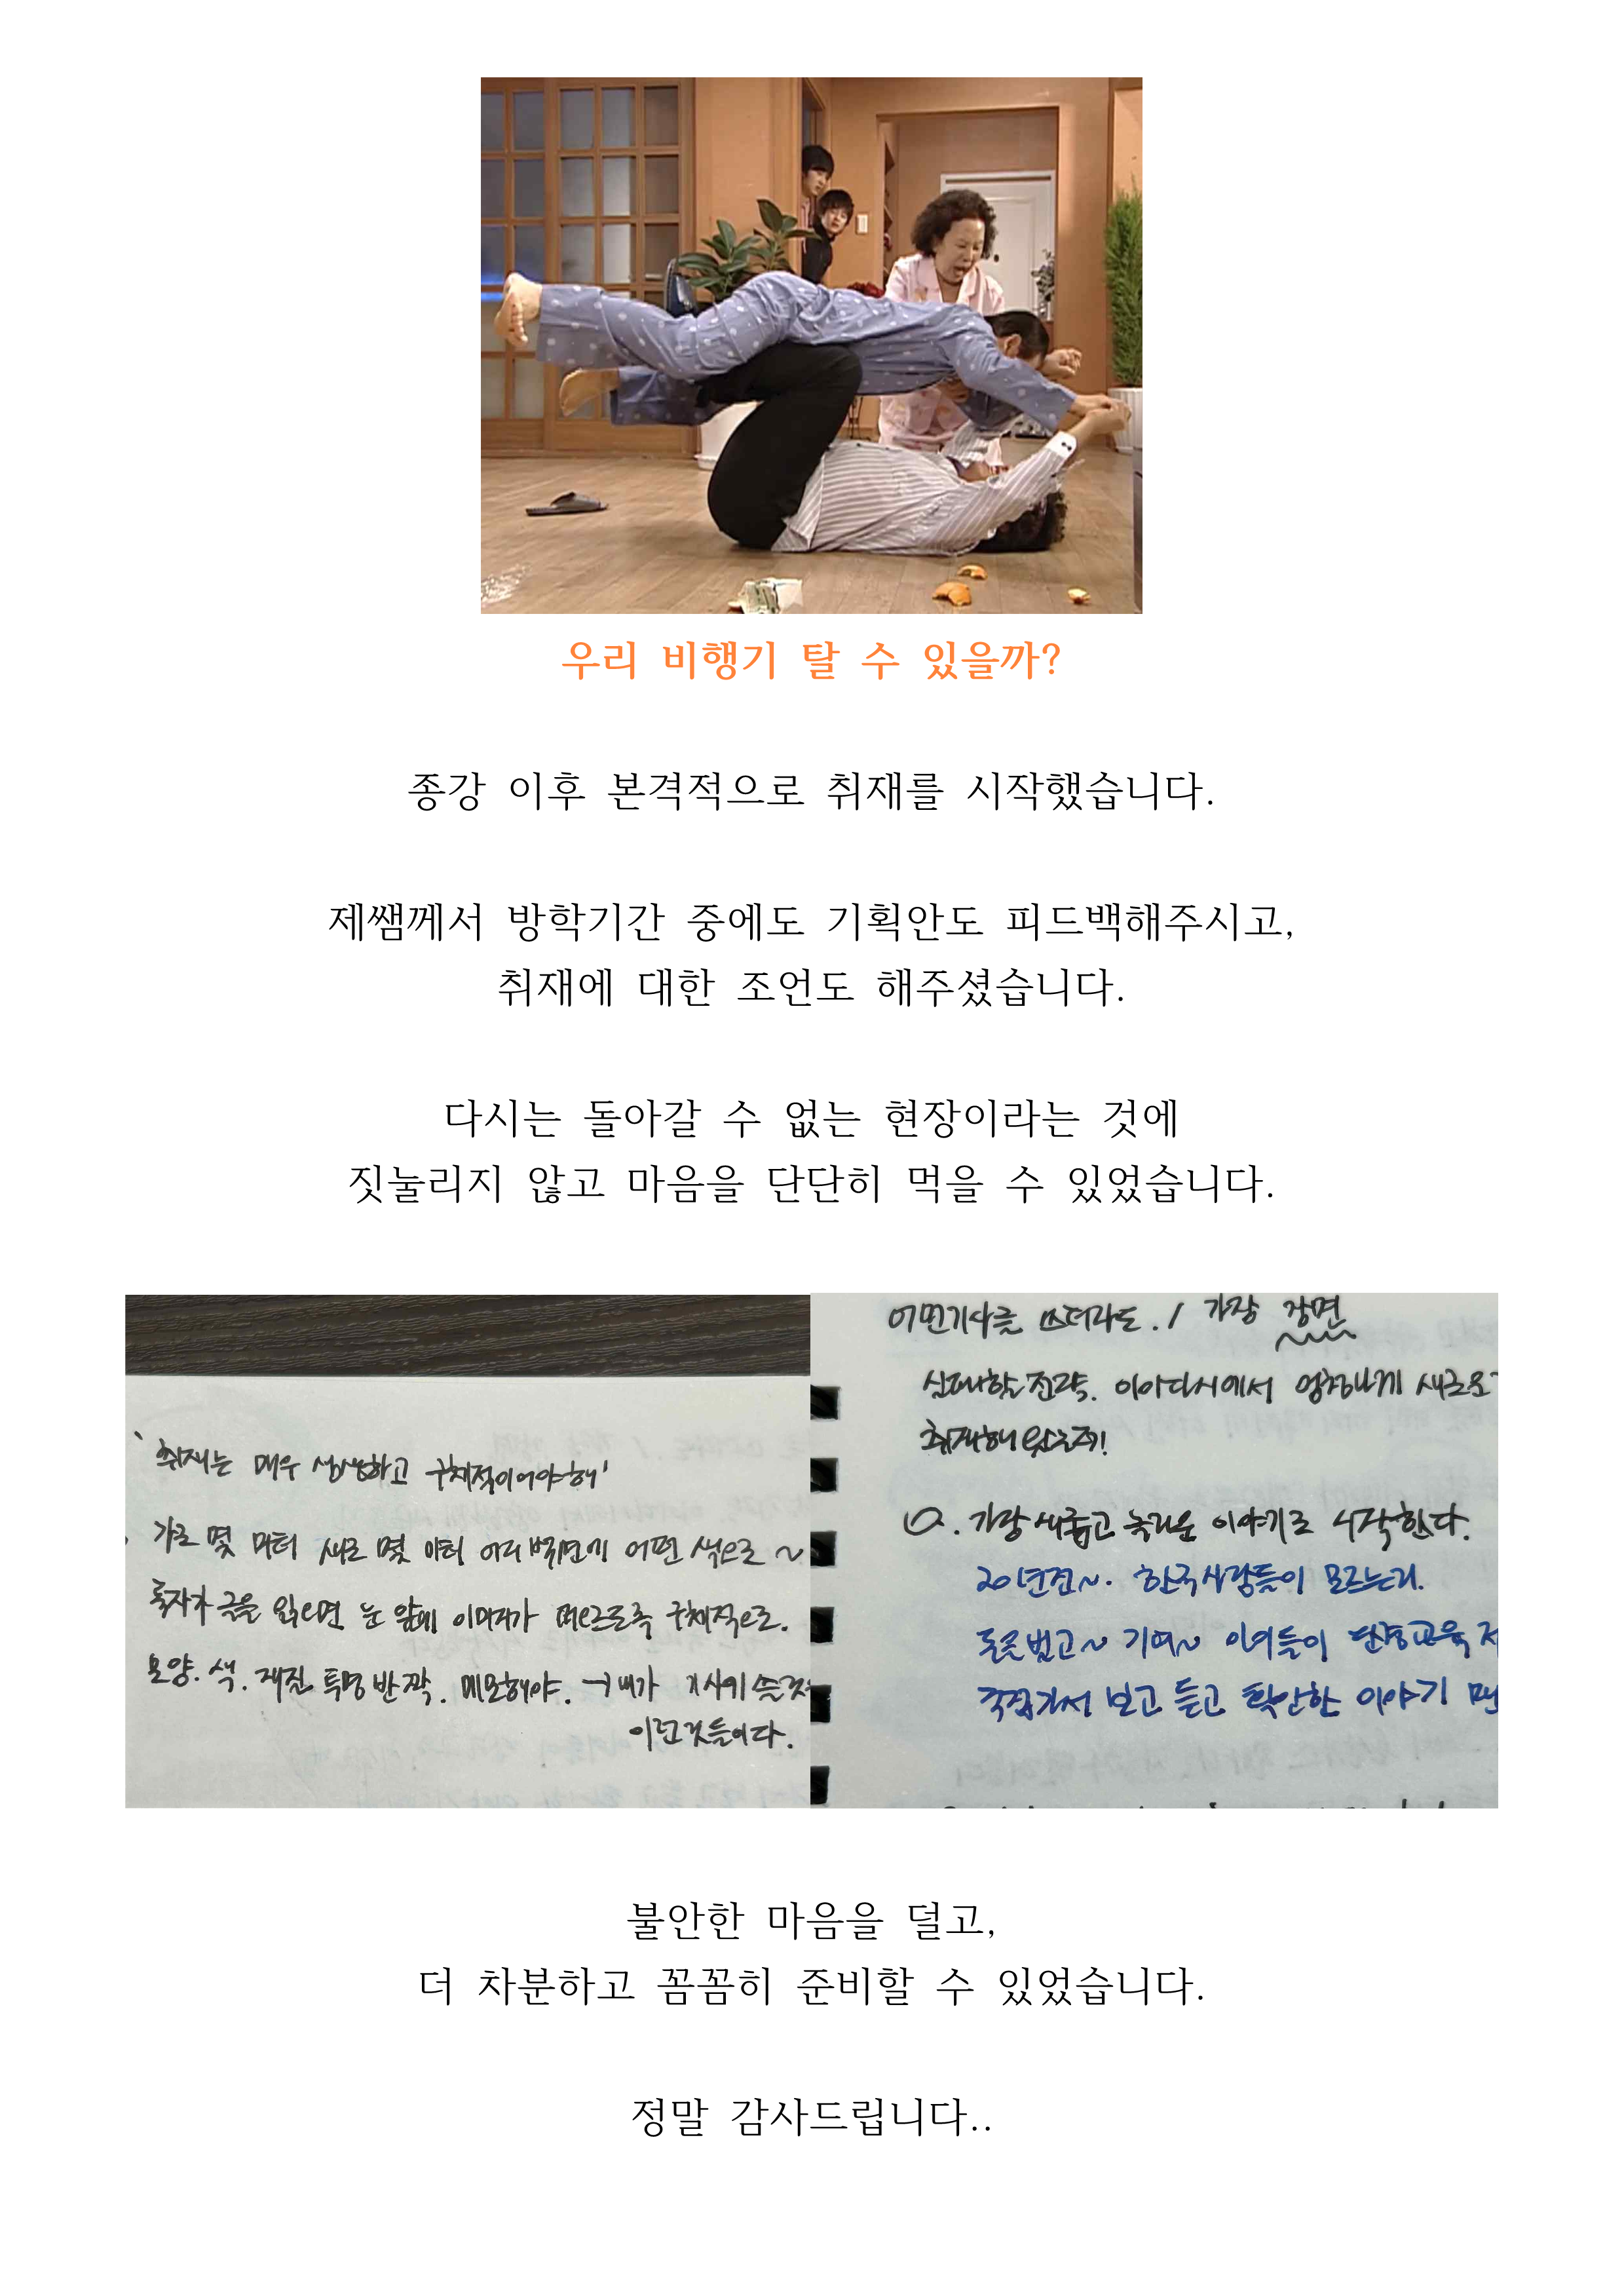 우리 비행기 탈 수 있을까?
종강 이후 본격적으로 취재를 시작했습니다.
제쌤께서 방학기간 중에도 기획안도 피드백해주시고,
취재에 대한 조언도 해주셨습니다.
다시는 돌아갈 수 없는 현장이라는 것에
짓눌리지 않고 마음을 단단히 먹을 수 있었습니다.
'취재는 매우 생생하고 구체적이어야해'
가로 몇 미터 세로 몇 미터 어디 벽면에 어떤 색으로 ~
독자가 글을 읽으면 눈 앞에 이미지가 떠오르도록 구체적으로.
모양. 색. 재질 투명 반짝. 메모해야. → 내가 기사에 쓸 것
이런것들이다.
어떤기사를 쓰더라도. / 가장 장면
취재해 왔는지!
Q. 가장 새롭고 놀라운 이야기로 시작한다.
20년전~. 한국사람들이 모르는거.
직접가서 보고 듣고 확인한 이야기
불안한 마음을 덜고,
더 차분하고 꼼꼼히 준비할 수 있었습니다.
정말 감사드립니다..